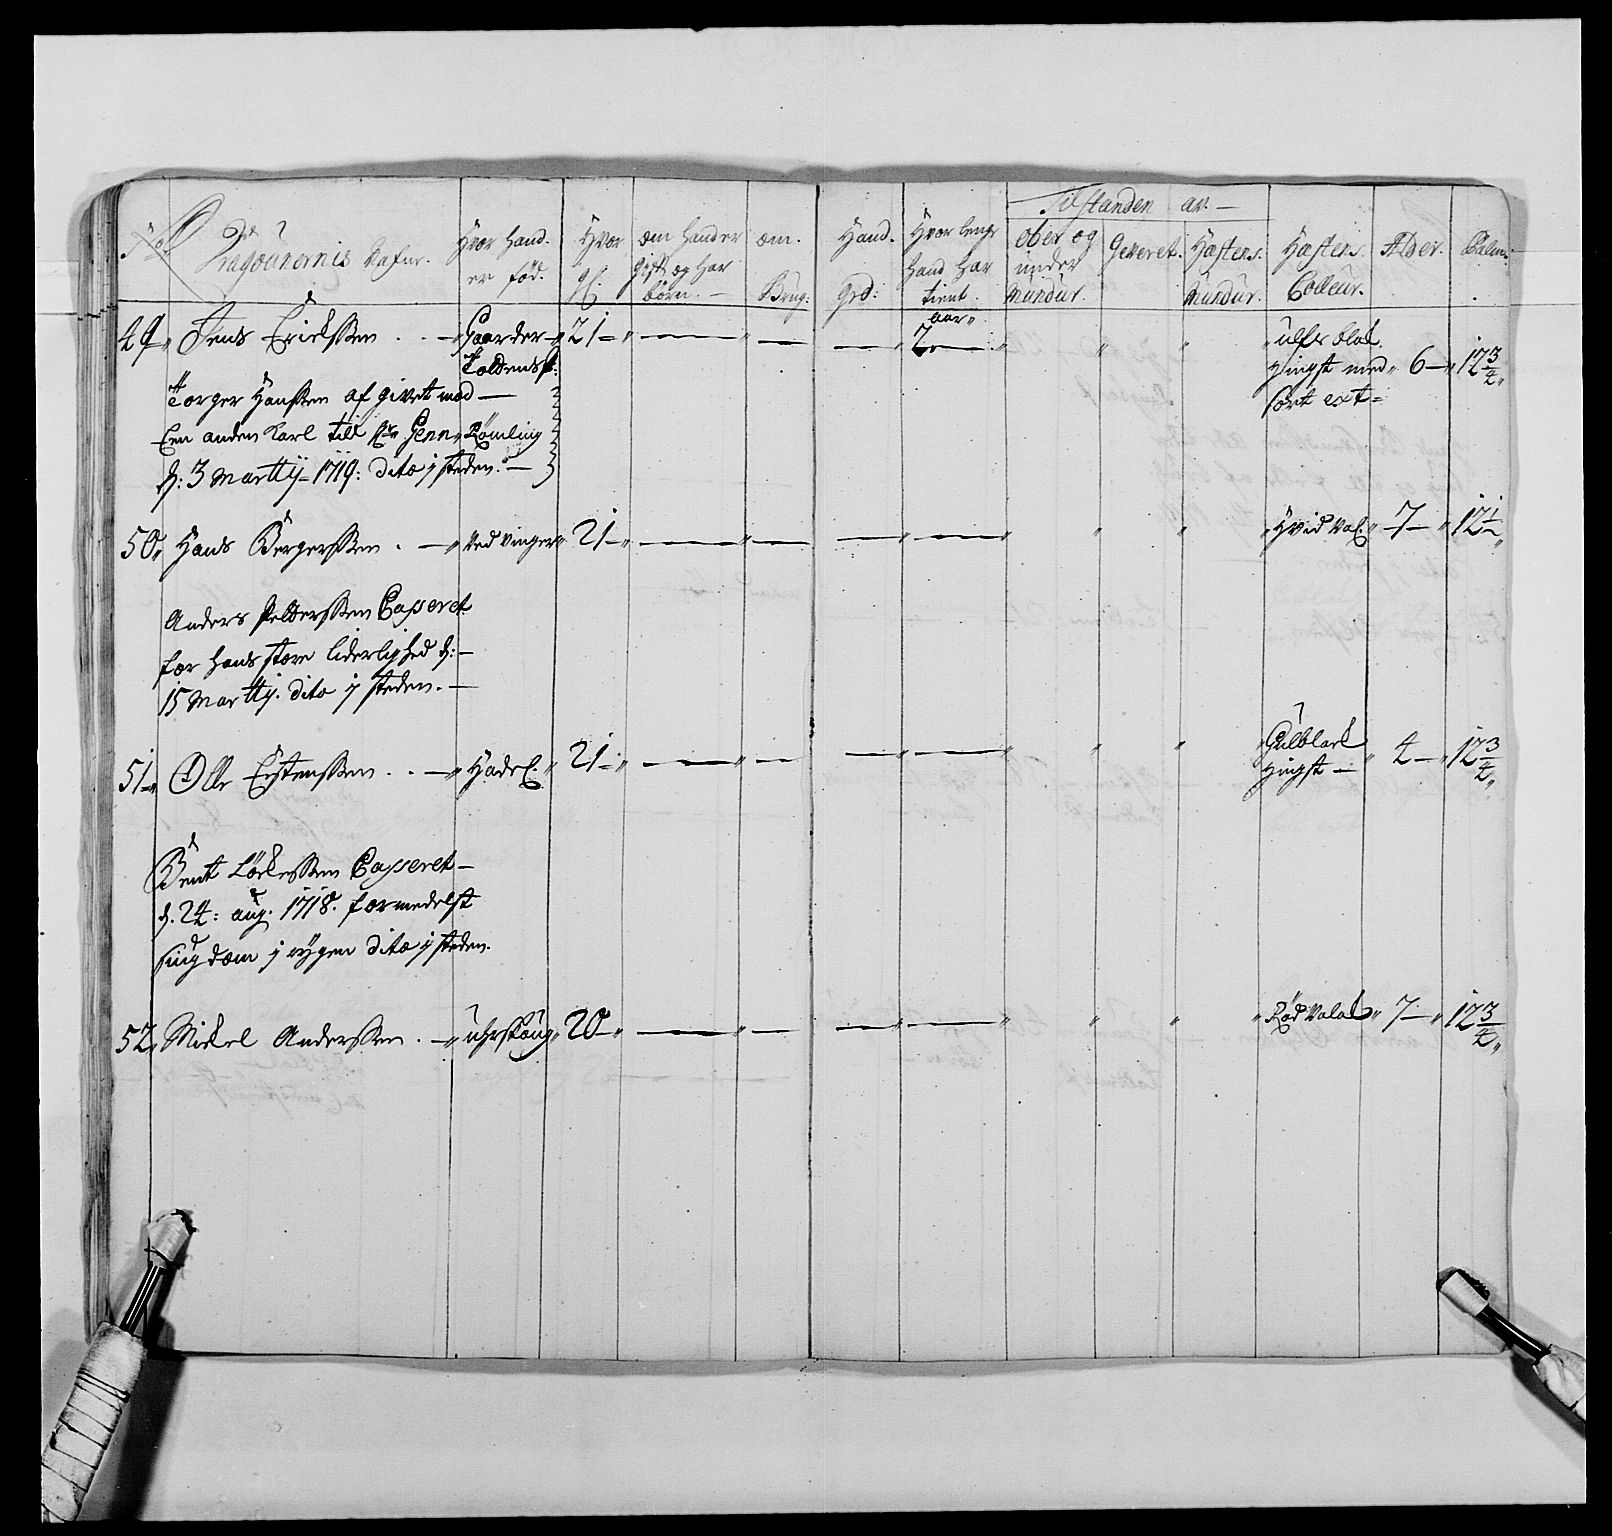 No
Dragounernis Nafne.
Hvor hand
er fød.
Hvor
gl.
om hand er
gift og har
børn. —
om.
Brug:
Hand.
Grd:
Hvor lenge
hand har
tient.
Tilstanden av. —
ober og
under
Mundur.
Geveret.
Hæstens.
Mundur.
Hæstens.
Colleur.
Alder.
49 Jens Erichssen . . — Gaarder — 21 — aar 2 — 6 — 12 3/4
hingst med
sort
Torger Hanssen af givet mod —
Een anden Karl till Genn Rømling
d: 3 Martij — 1719: dito j steden. —
50 Hans Bergerssen . — ved vinger 21 — Hvid Val. 7 — 12 1/2
Anders Pelderssen Casseret
for hans store liderlighed d: —
15 Martij. dito j steden. —
51 Olle Estenssen . . — Hadel. 21 — Gulblact 4 — 12 3/4
Hingst —
Bent Casseret —
d. 24: aug. 1718. formedelst
siugdom j rygen dito j steden.
52 Mickel Anderssen . — uhrskoug 20 — Rød Valak 7 — 12 3/4